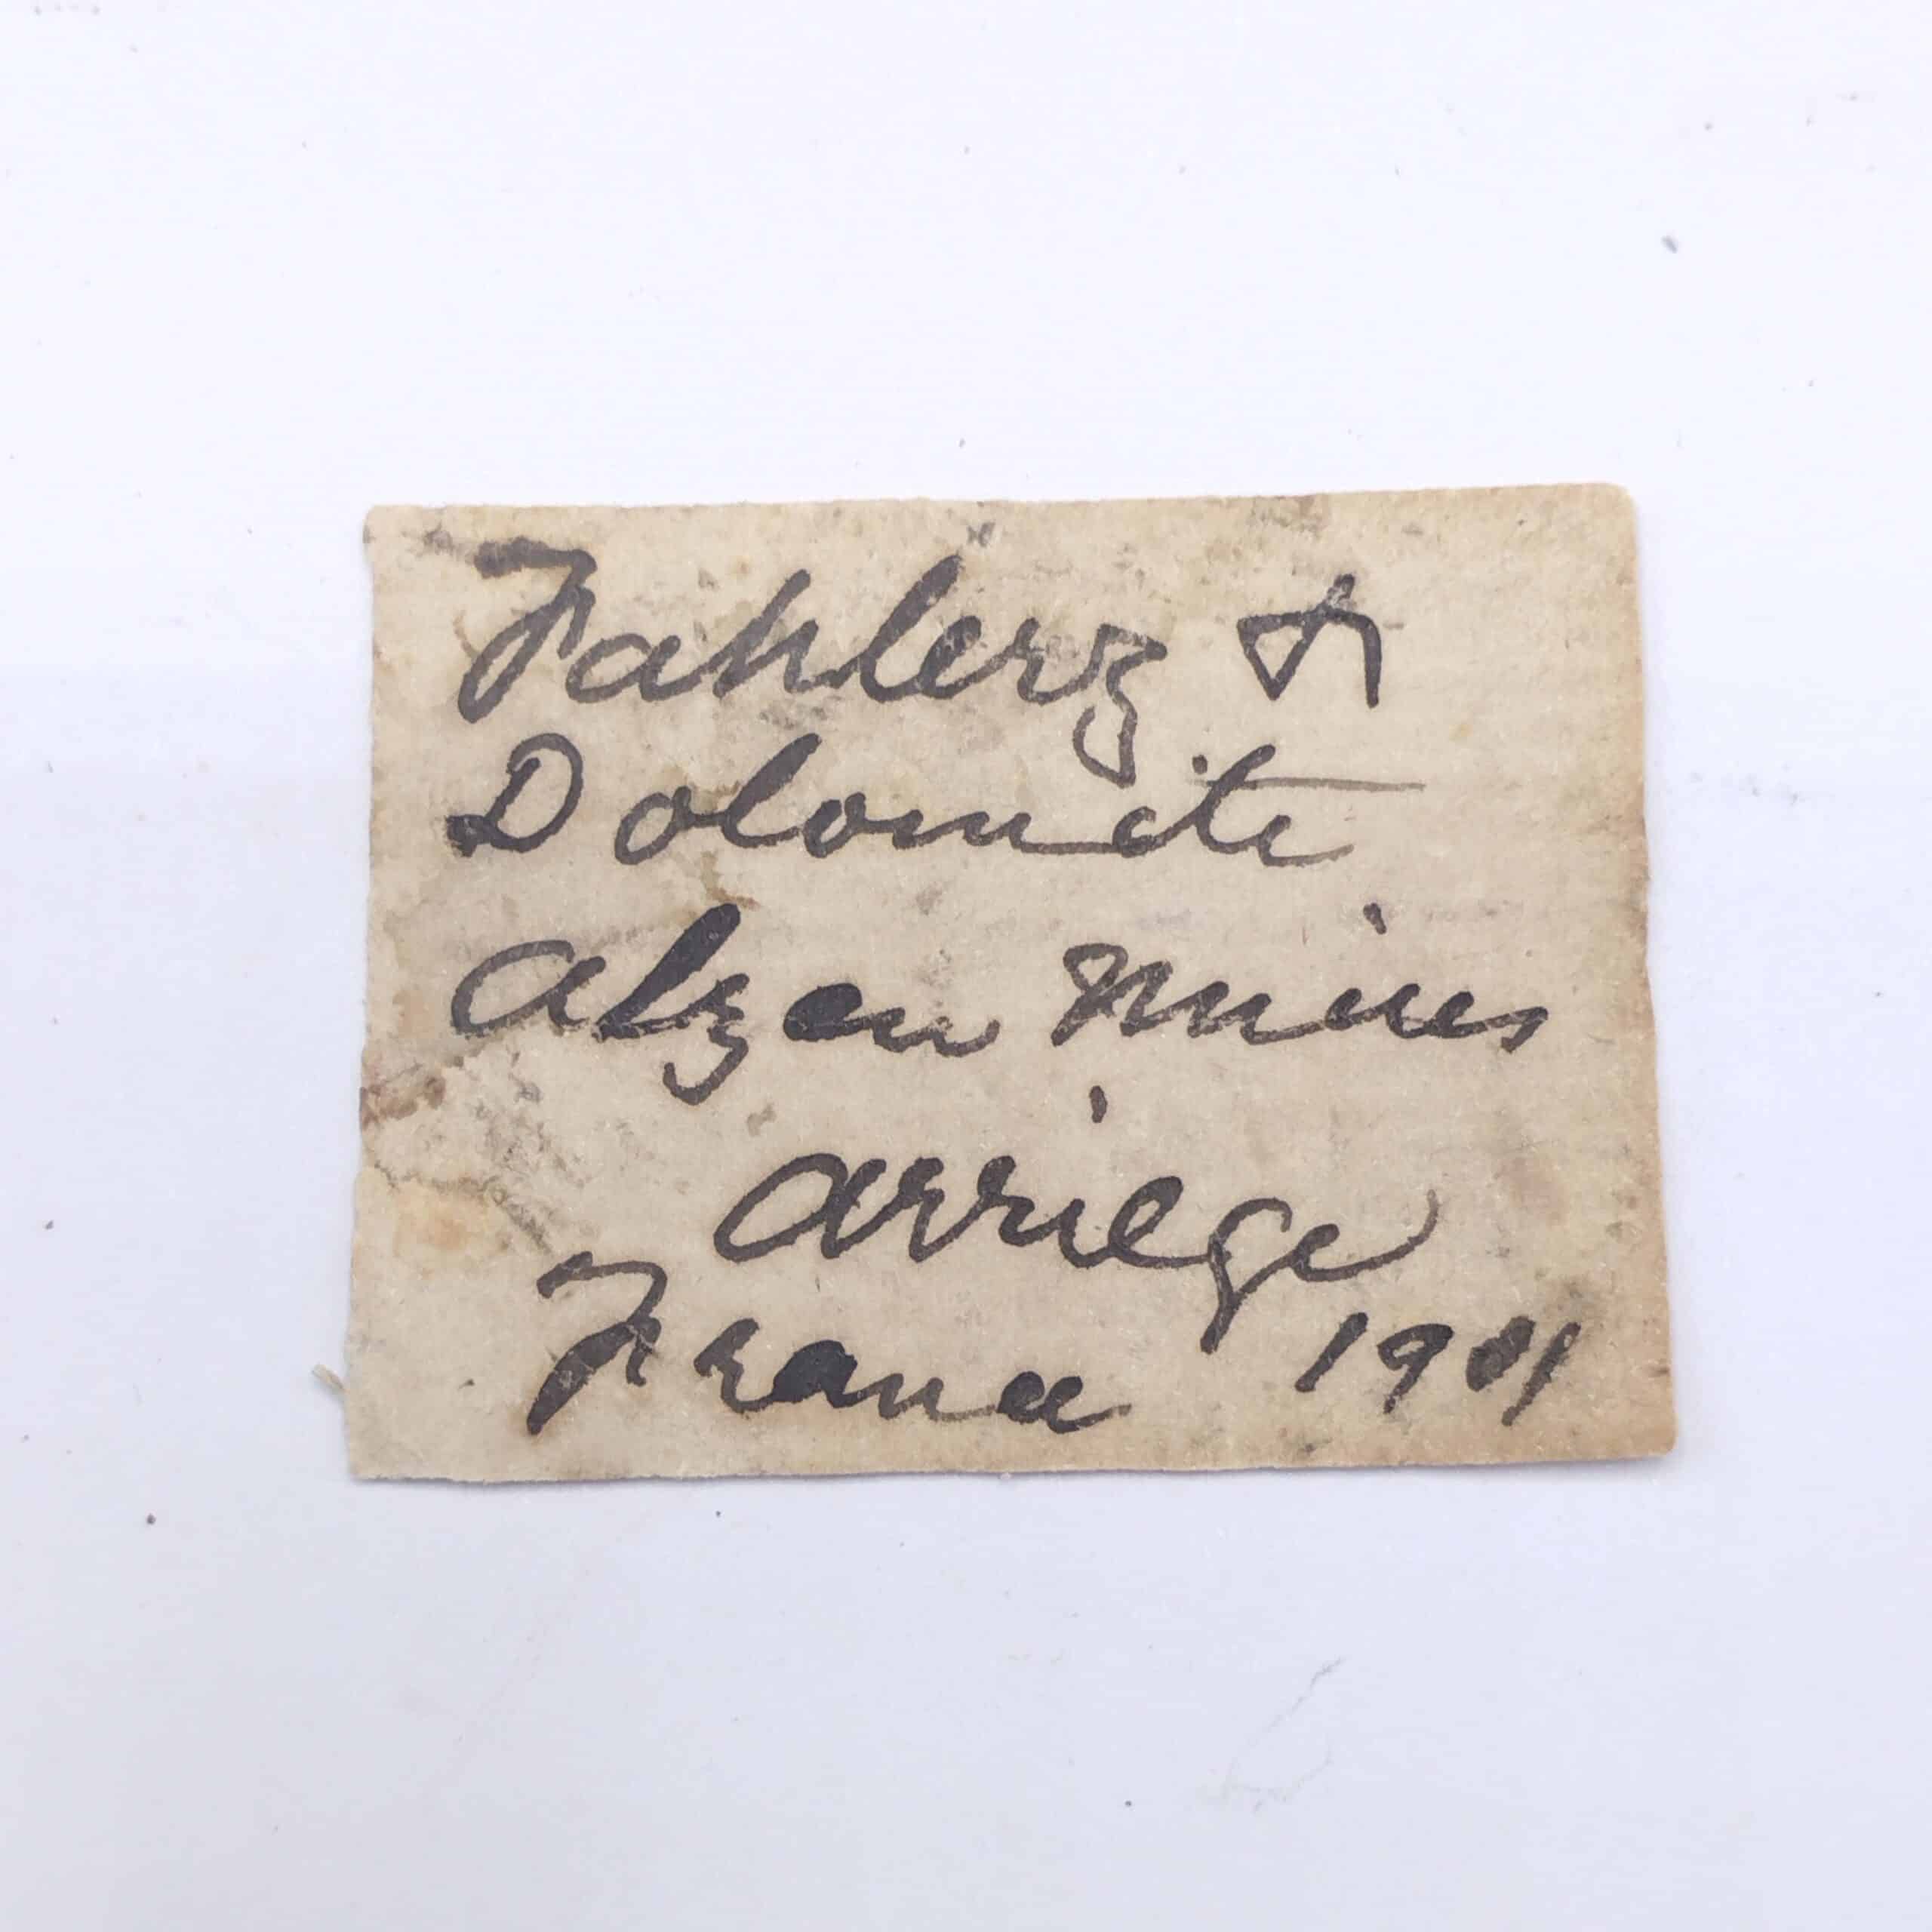 Fahlerz &
Dolomite
Alzen Mines
Arriege
France 1901